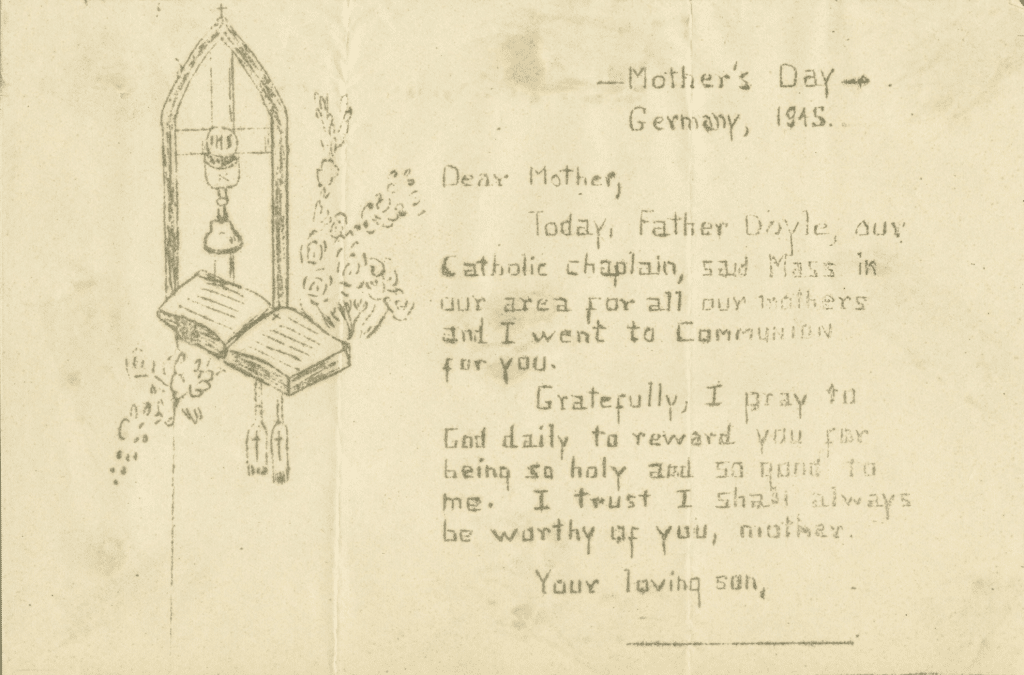 IHS
—Mother's Day—
Germany, 1945.
Dear Mother,
Today, Father Doyle, our
Catholic chaplain, said Mass in
our area for all our mothers
and I went to Communion
for you.
Gratefully, I pray to
God daily to reward you for
being so holy and so good to
me. I trust I shall always
be worthy of you, mother.
Your loving son,